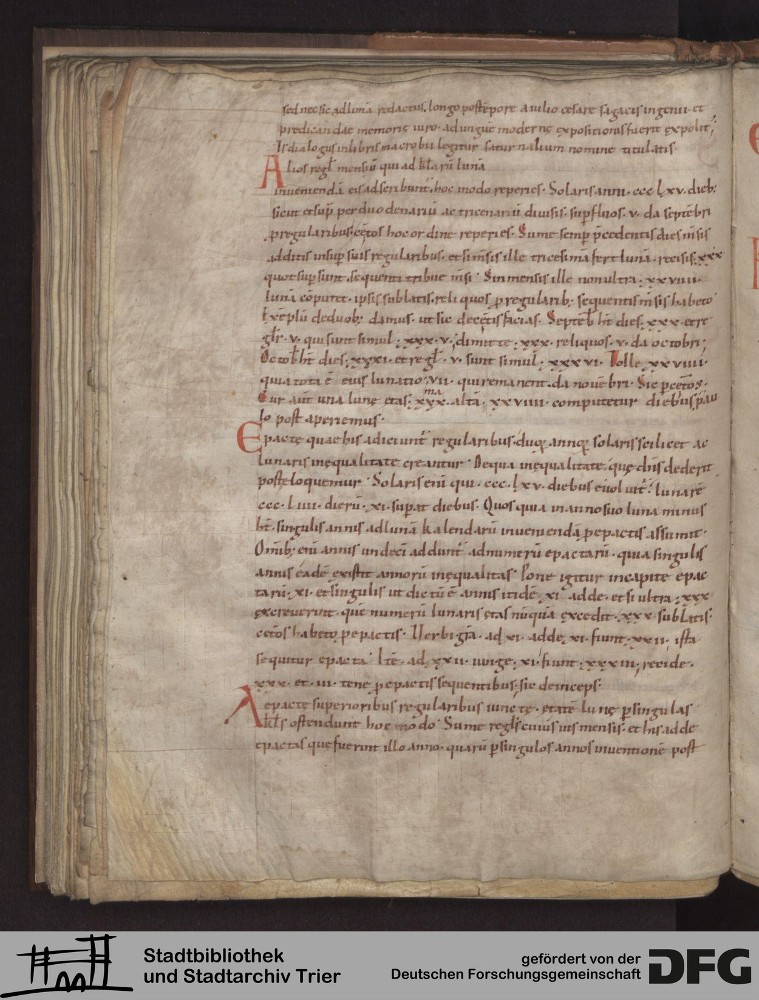 sed nec sic ad limā redactus. longo post tēpore a iulio cesare sagacis ingenii et
predicandae memorię uiro. ad unguē modernę expositionis fuerit expolit᷒;
Is dialogus in libris macrobii legitur saturnalium nomine titulatis.
Alios regł mensiū qui ad kłarū lunā
inueniendā eis adscribunt᷒. hoc modo reperies. Solaris anni. ccc lxv. dieb;
sicut et sup̄ per duodenariū ac tricenariū diuisis. sup̄fluos. v. da septēbri
p regularibus. cęt̄os hoc ordine reperies. Sume semp̄ p̄cedentis dies m̄sis
additis insup̄ suis regularibus. et si m̄sis ille tricesimā fert lunā. recisis. xxx
quot sup̄ sunt. sequenti tribue m̄si. Sin mensis ille non ultra. xxviiii.
lunā cōputet. ipsis sublatis. reliquos p regularib; sequentis m̄sis habeto
Exēplū de duob; damus. ut sic de cęt̄is facias. Septēb̄ ht̄ dies. xxx. et re
głr. v. qui sunt simul. xxxv. dimitte. xxx. reliquos. v. da octobri;
Octob̄ ht̄ dies. xxxi. et regł. v. sunt simul. xxxvi. Tolle xxviiii.
quia tota ē eius lunatio. vii. qui remanent. da nouēbri. Sic p cęt̄os.
Cur aūt una lunę etas. xxx.ma altā. xxviiii. computetur diebus, pau
lo post aperiemus.
Epactę quae his adiciunt᷒ regularibus. duoꝝ annoꝝ solaris scilicet ac
lunaris inęqualitate creantur. De qua inęqualitate. quę dn̄s dederit
post eloquemur. Solaris eni qui. ccc. lxv. diebus euoluit᷒. lunarē
ccc. liiii. dierū. xi. sup̄at diebus. Quos quia in anno suo luna minus
ht̄. singulis annis ad lunā kalendarū inueniendā p epactis assumit.
Om̄ib; eni annis undeci addunt᷒ ad numerū epactarū. quia singulis
annis eadē existit annorū inęqualitas. Pone igitur in capite epac
tarū. xi. et singulis ut dictū ē annis itidē. xi. adde. et si ultra. xxx
excreuerint. quē numerū lunaris etas nūquā excedit. xxx. sublatis.
cęt̄os habeto p epactis. Uerbi gr̄a. ad. xi. adde. xi. fiunt. xxii. ista
sequitur epacta. Itē. ad. xxii. iunge. xi. fiunt. xxxiii. recide.
xxx. et. iii. tene p epactis sequentibus. sic deinceps.
Aepactę superioribus regularibus iunctę. etatē lunę p singulas
kłs ostendunt hoc modo. Sume regłs cuiusuis mensis. et his adde
epactas que fuerint illo anno. quarū p singulos annos inuentionē post
Stadtbibliothek
und Stadtarchiv Trier
gefördert von der
Deutschen Forschungsgemeinschaft
DFG